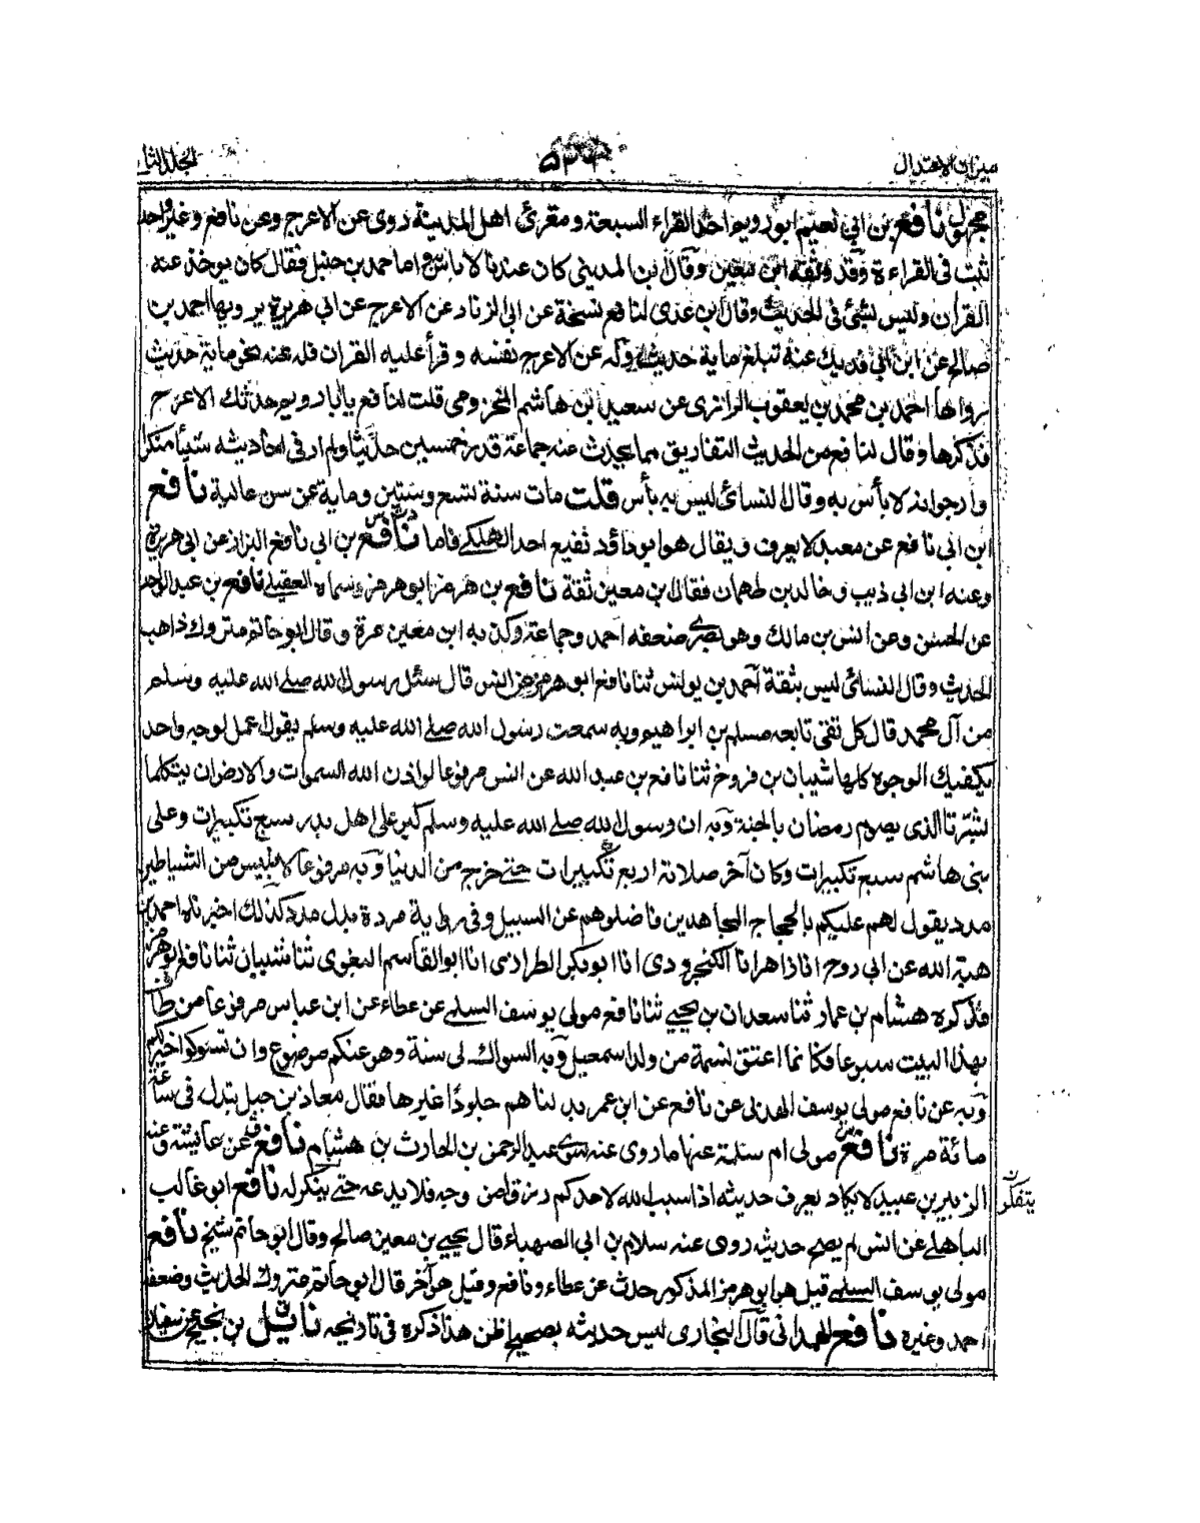 ميزان الاعتدال
المجلد الثا
مجهول نافع بن ابي نعيم ابو رويم احد القراء السبعة ومقرئ اهل المدينة روى عن الاعرج وعن نافع وغير واحد
ثبت في القراءة وقد وثقه ابن معين وقال ابن المديني كان عندنا لا باس به واما احمد بن حنبل فقال كان يوخذ عنه
القران وليس بشئ في الحديث وقال ابن عدى لنافع نسخة عن ابي الزناد عن الاعرج عن ابي هريرة يرويها احمد بن
صالح عن ابن ابي فديك عنه تبلغ ماية حديث وله عن الاعرج نفسه وقرأ عليه القران فله عنه نحو ماية حديث
رواها احمد بن محمد بن يعقوب الرازى عن سعيد بن هاشم المخزومى قلت لنافع ياابا رويم حدثك الاعرج
فذكرها وقال لنافع من الحديث التفاريق مما يحدث عنه جماعة قدر خمسين حديثا ولم ار في احاديثه شيأ منكرا
وارجوانه لا بأس به وقال النسائى ليس به بأس قلت مات سنة تسع وستين وماية عن سن عالية نافع
ابن ابي نافع عن معبد لا يعرف ويقال هو ابو داؤد نفيع احد الهلكى فاما نافع بن ابي نافع البزاز عن ابي هريرة
وعنه ابن ابي ذيب وخالد بن طهمان فقال ابن معين ثقة نافع بن هرمز ابو هرمز وسماه العقيلي نافع بن عبد الواحد
عن الحسن وعن انس بن مالك وهو بصرى ضعفه احمد وجماعة وكذبه ابن معين مرة وقال ابو حاتم متروك ذاهب
الحديث وقال النسائى ليس بثقة احمد بن يونس ثنا نافع ابو هرمز عن انس قال سئل رسول الله صلى الله عليه وسلم
من آل محمد قال كل تقى تابعه مسلم بن ابراهيم وبه سمعت رسول الله صلى الله عليه وسلم يقول اعمل لوجه واحد
يكفيك الوجوه كلها شيبان بن فروخ ثنا نافع بن عبد الله عن انس مرفوعا لو اذن الله السموات والارض ان يتكلما
بشرتا الذى يصوم رمضان بالجنة وبه ان رسول الله صلى الله عليه وسلم كبر على اهل بدر سبع تكبيرات وعلى
بنى هاشم سبع تكبيرات وكان آخر صلاته اربع تكبيرات حتى خرج من الدنيا وبه مرفوعا لابليس من الشياطين
مردة يقول لهم عليكم بالحجاج والمجاهدين فاضلوهم عن السبيل وفى رواية مردة بدل كذلك اخبرناه احمد بن
هبة الله عن ابي روح انا زاهر انا الكنجرودى انا ابو بكر الطرازى انا ابو القاسم البغوى ثنا شيبان ثنا نافع ابو هرمز
فذكره هشام بن عمار ثنا سعدان بن يحيى ثنا نافع مولى يوسف السلمى عن عطاء عن ابن عباس مرفوعا من طاف
بهذا البيت سبوعا فكانما اعتق نسمة من ولد اسمعيل وبه السواك لى سنة وهو عنكم موضوع وان تسوكوا خير لكم
وبه عن نافع مولى يوسف الهذلى عن نافع عن ابن عمر بدلناهم جلودا غيرها فقال معاذ بن جبل تبدل فى ساعة
مائة مرة نافع مولى ام سلمة عنها ما روى عنه سوى عبد الرحمن بن الحارث بن هشام نافع عن عايشة وعنه
الزبير بن عبيد لا يكاد يعرف حديثه اذا سبب الله لاحدكم رزقا من وجه فلا يدعه حتى يتنكر له نافع ابو غالب
يتفكر ن
الباهلى عن انس لم يصح حديثه روى عنه سلام بن ابي الصهباء قال يحيى بن معين صالح وقال ابو حاتم شيخ نافع
مولى يوسف السلمى قيل هو ابو هرمز المذكور حدث عن عطاء ونافع وقيل هو آخر قال ابو حاتم متروك الحديث وضعفه
احمد وغيره نافع الهمدانى قال البخارى ليس حديثه بصحيح اظن هذا ذكره فى تاريخه نائل بن نجيح عن سفيان